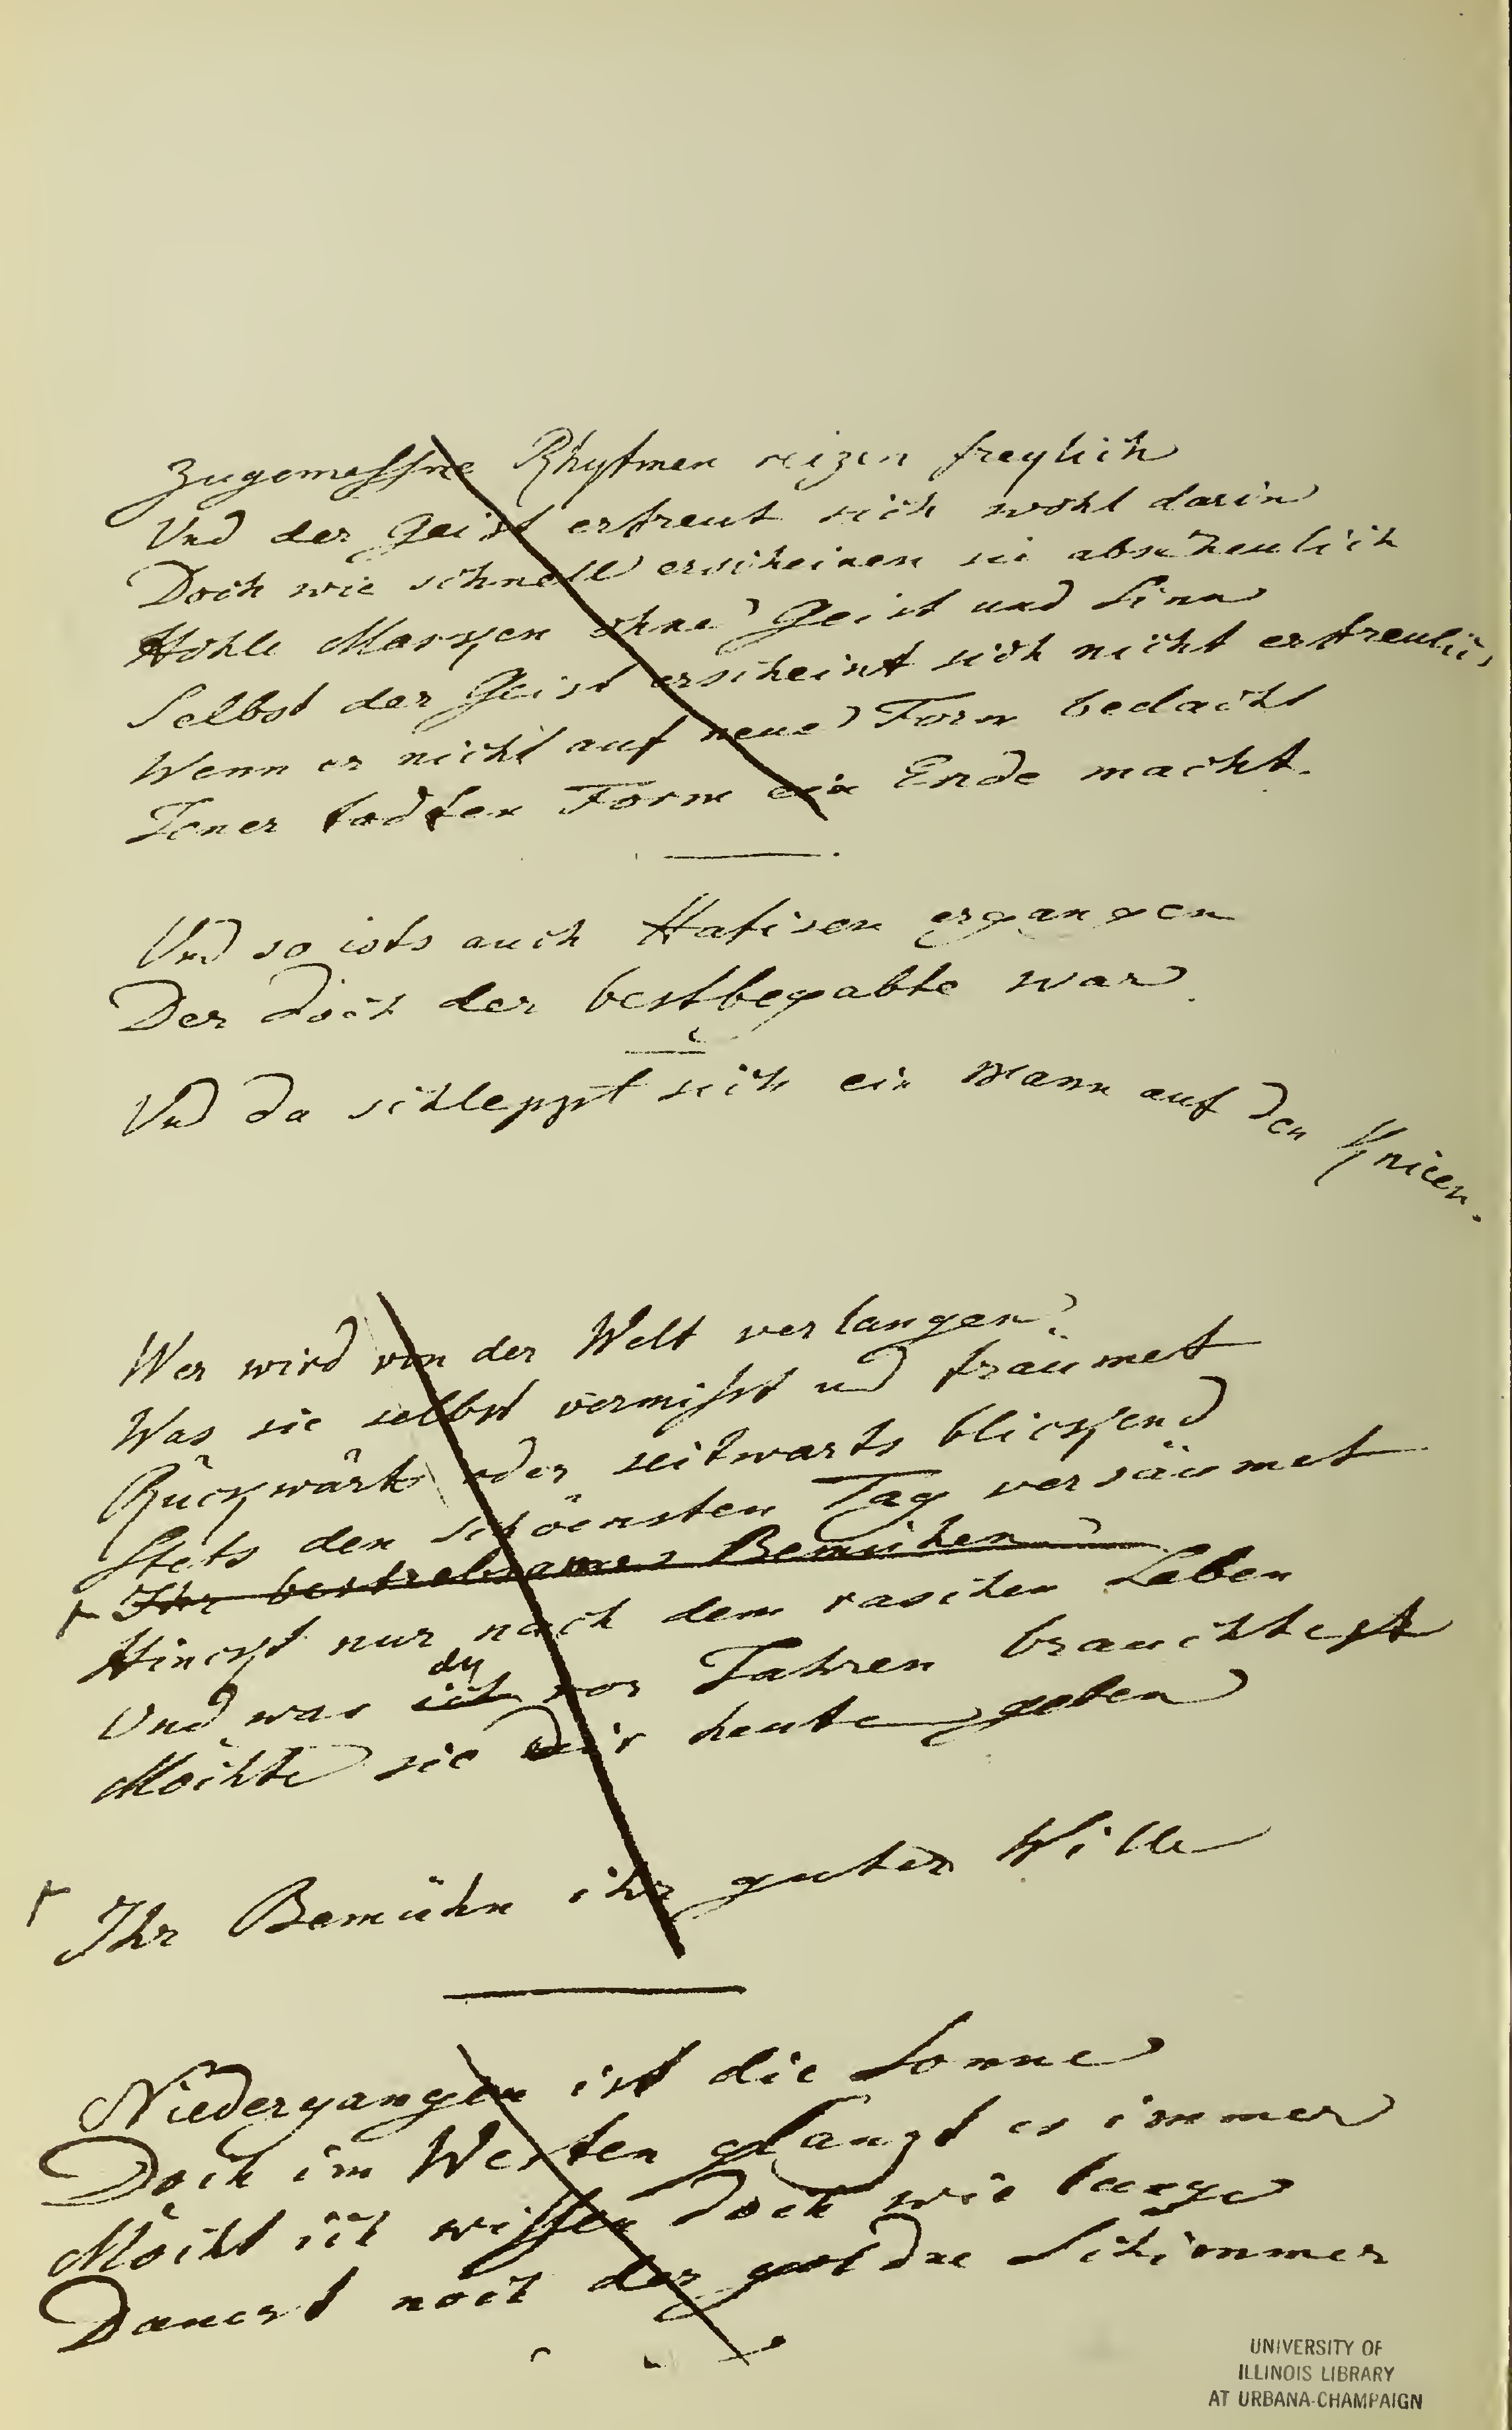 Zugemessne Rhytmen reizen freylich
Und der Geist erfreut sich wohl darin
Doch wie schnell erscheinen sie abscheulich
Hohle Marsken ohne Geist und Sinn
Selbst der Geist erscheint sich nicht erfreulich
Wenn er nicht auf neue Form bedacht
Jener todten Form ein Ende macht.
Und so ists auch Hafisen ergangen
Der doch der bestbegabte war
Und da schleppt sich ein Mann auf den Knieen.
Wer wird von der Welt verlangen
Was sie selbst vermisst und träumet
Rückwärts oder seitwarts blickend
Stets den schöensten Tag versäumet
Ihr bestrebsames Bemühen
Hinckt nur nach dem raschen Leben
du
Und was ich vor Jahren brauchtest
Möchte sie dir heute geben
Ihr Bemühn ihr guter Wille
Niedergangen ist die Sonne
Doch im Westen glänzt es immer
Möcht ich wissen doch wie lange
Dauert noch der goldne Schimmer
UNIVERSITY OF
ILLINOIS LIBRARY
AT URBANA-CHAMPAIGN